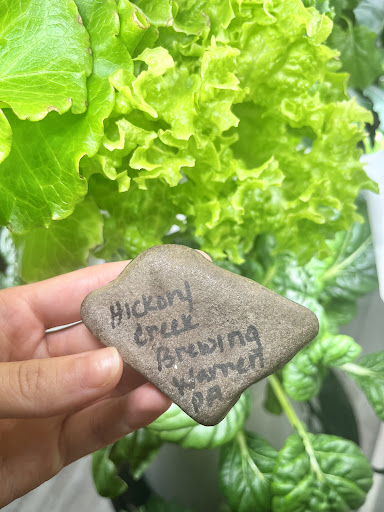 Hickory
Creek
Brewing
Warren
PA